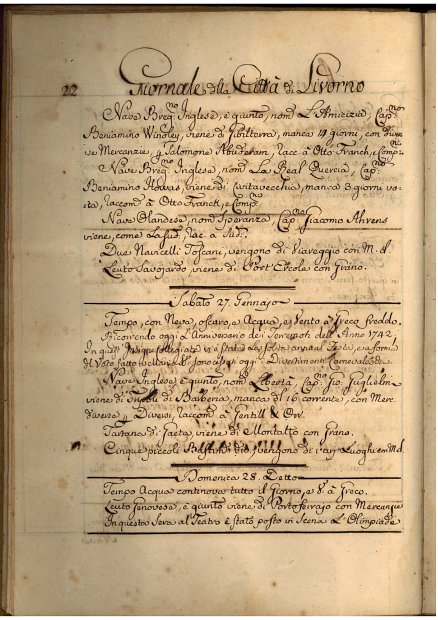 22 Giornale della Città di Livorno
Nave Breq.no Inglese, è giunto, nom. L'Amicizia, Cap.no
Beniamino viene di Gibilterra, manca 19 giorni, con
se Mercanzie, a Salomone Abuderam, racc. a Otto Franck, e Comp.
Nave Breq.no Inglesa, nom. La Real Quercia, Cap.no
Beniamino viene di Civitavecchia, manca 3 giorni
racom. a Otto Franck, e Comp.
Nave Olandese, nom. Speranza, Cap.no Giacomo Ahrens
viene, come
Due Navicelli Toscani, vengono di Viareggio con M. d.
Leuto Savojardo viene di Port'Ercole con Grano.
Sabato 27. Gennajo
Tempo, con Neve, oscuro, e Acqua, e Vento a Greco freddo.
Ricorrendo oggi l'Anniversario dei Terremoti dell'Anno 1742.
In questa è stata la solita
di Voto fatto sono oggi i Divertimenti Carnevaleschi
Nave Inglese è giunto, nom. Libertà, Cap.no Gio. Guglielmo
viene di Tripoli di Barberia, manca dl 16 corrente, con Merc.
d'averse a Diversi, raccom. a Gentill & Orr.
Tartana di Gaeta, viene di Montalto con Grano.
Cinque piccoli Bastim.ti vengono di varj Luoghi con M. d.
Domenica 28. Detto
Tempo Acqua continova tutto il Giorno, e V. a Greco.
Leuto Genovese, è giunto viene di Portoferrajo con Mercanzie
In questa Sera al Teatro è stato posto in Scena L'Olimpiade